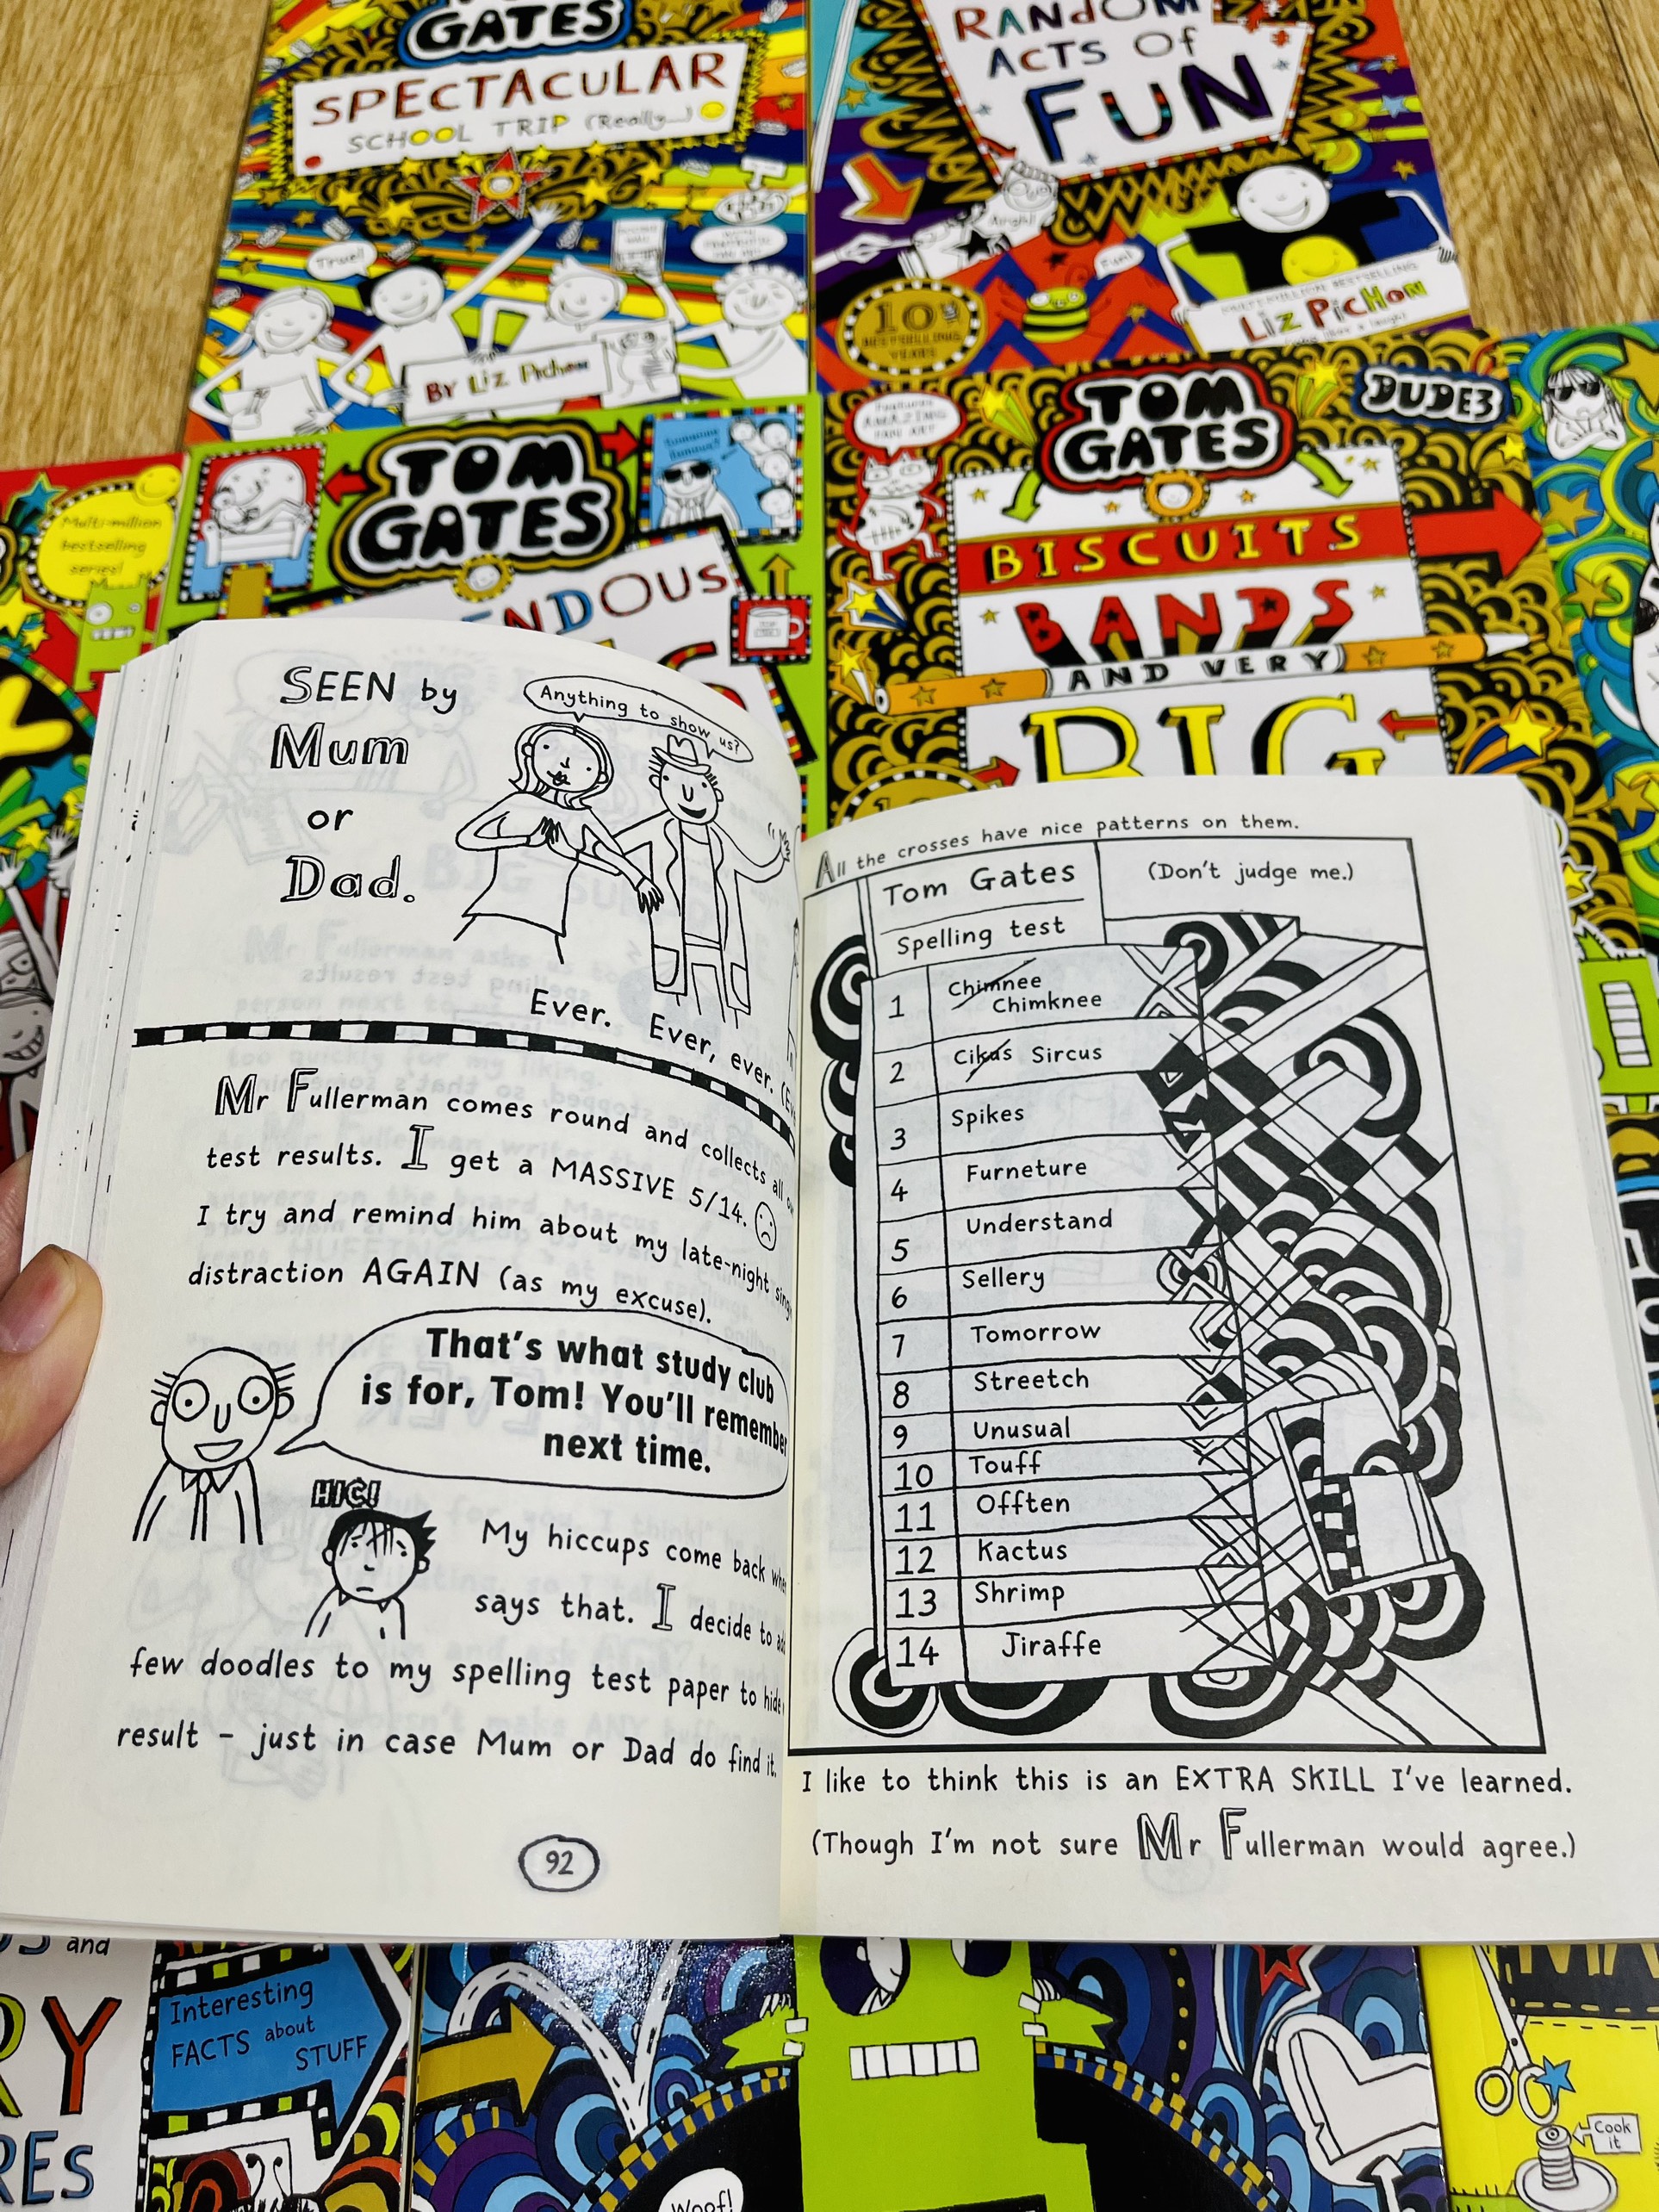 GATES
SPECTACULAR
SCHOOL TRIP (Really...)
Truell
BY Liz Pichon
RANdOM
ACTS Of
FUN
Fun!
10
BESTSELLING
YEARS
MULTI-MILLION BESTSELLING
Liz PicHon
Multi-million
bestselling
series!
TOM
GATES
ENDOUS
Features
AMAZING
TOM
GATES
DUDE3
BISCUITS
BANDS
AND VERY
BIG
SEEN by
Mum
or
Dad.
Anything to show us?
Ever. Ever, ever.
Mr Fullerman comes round and collects all
test results. I get a MASSIVE 5/14.
I try and remind him about my late-night
distraction AGAIN (as my excuse).
That's what study club
is for, Tom! You'll remember
next time.
HIC!
My hiccups come back
says that. I decide to
few doodles to my spelling test paper to hide
result - just in case Mum or Dad do find it.
92
All the crosses have nice patterns on them.
Tom Gates
(Don't judge me.)
Spelling test
1 Chimnee
Chimknee
2 Cikus Sircus
3 Spikes
4 Furneture
5 Understand
6 Sellery
7 Tomorrow
8 Streetch
9 Unusual
10 Touff
11 Offten
12 Kactus
13 Shrimp
14 Jiraffe
I like to think this is an EXTRA SKILL I've learned.
(Though I'm not sure Mr Fullerman would agree.)
and
RY
REs
Interesting
FACTS about
STUFF
Woof!
Cook
it